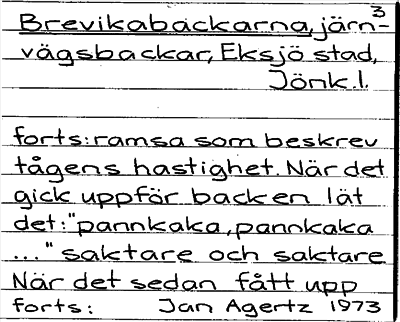 3
Brevikabackarna, järn-
vägsbackar, Eksjö stad,
Jönk.l.
forts: ramsa som beskrev
tågens hastighet. När det
gick uppför backen lät
det: "pannkaka, pannkaka
..." saktare och saktare
När det sedan fått upp
forts: Jan Agertz 1973